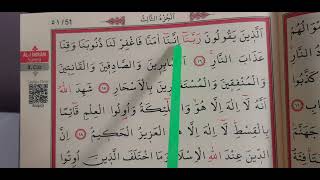 ٥١/51
اَلْجُزْءُ الثَّالِثُ
اَلَّذٖينَ يَقُولُونَ رَبَّنَٓا اِنَّنَٓا اٰمَنَّا فَاغْفِرْ لَنَا ذُنُوبَنَا وَقِنَا
عَذَابَ النَّارِ ﴿١٦﴾ اَلصَّابِرٖينَ وَالصَّادِقٖينَ وَالْقَانِتٖينَ
وَالْمُنْفِقٖينَ وَالْمُسْتَغْفِرٖينَ بِالْاَسْحَارِ ﴿١٧﴾ شَهِدَ اللّٰهُ
اَنَّهُ لَٓا اِلٰهَ اِلَّا هُوَۙ وَالْمَلٰٓئِكَةُ وَاُو۬لُوا الْعِلْمِ قَٓائِمًا
بِالْقِسْطِؕ لَٓا اِلٰهَ اِلَّا هُوَ الْعَزٖيزُ الْحَكٖيمُ ﴿١٨﴾ اِنَّ
الدّٖينَ عِنْدَ اللّٰهِ الْاِسْلَامُ وَمَا اخْتَلَفَ الَّذٖينَ اُو۫تُوا